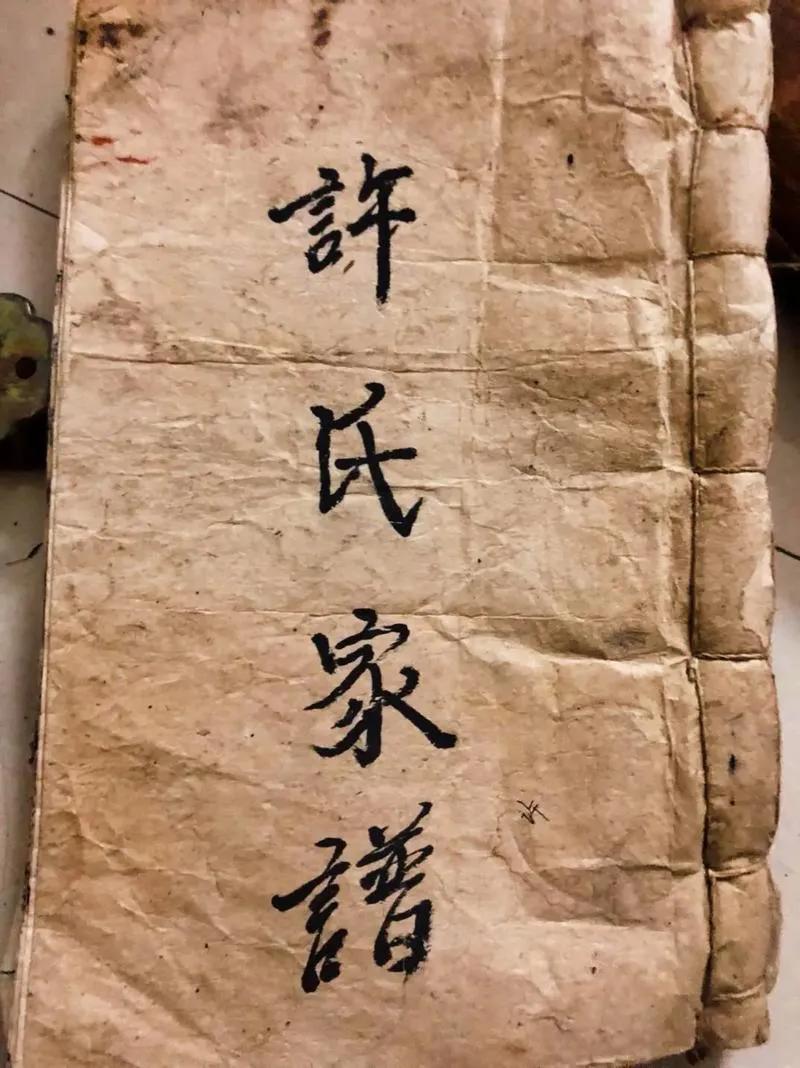 許氏家譜